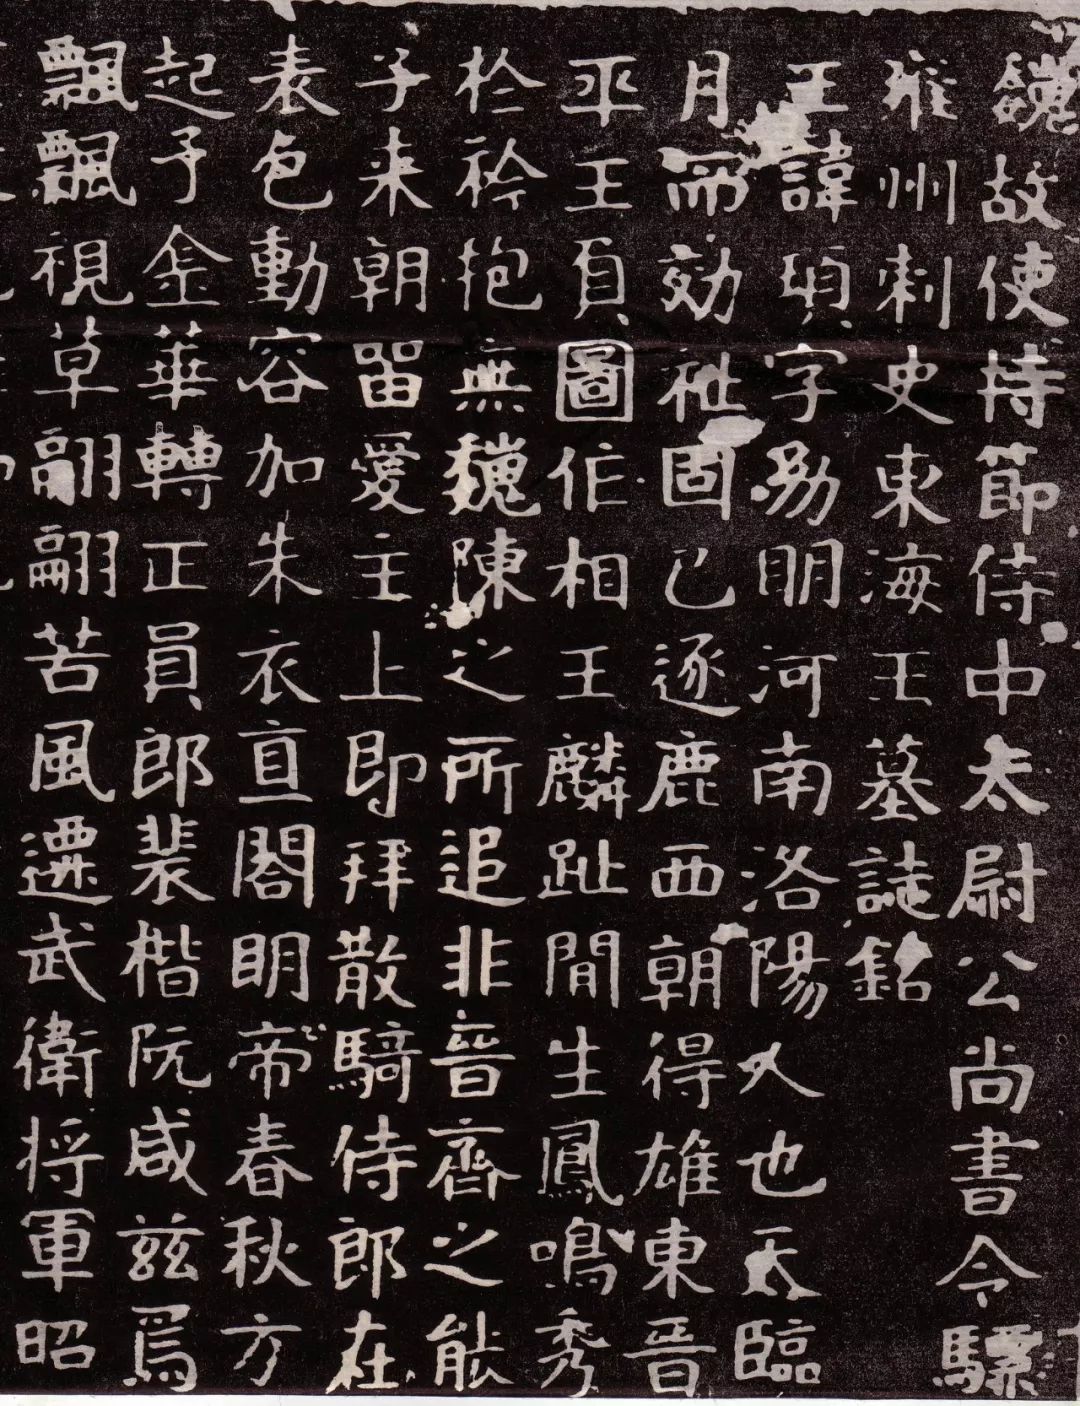 魏故使持節侍中太尉公尚書令驃
雍州刺史東海王墓誌銘
王諱頊字幼明河南洛陽人也天臨
月而効祉固已逐鹿西朝得雄東晉
平王負圖作相王麟趾間生鳳鳴秀
於衿抱無魏陳之所追非晉齊之能
子来朝留愛主上即拜散騎侍郎在
表色動容加朱衣直閤明帝春秋方
起予金華轉正員郎裴楷阮咸兹焉
飄飄視草翩翩苦風遷武衛将軍昭